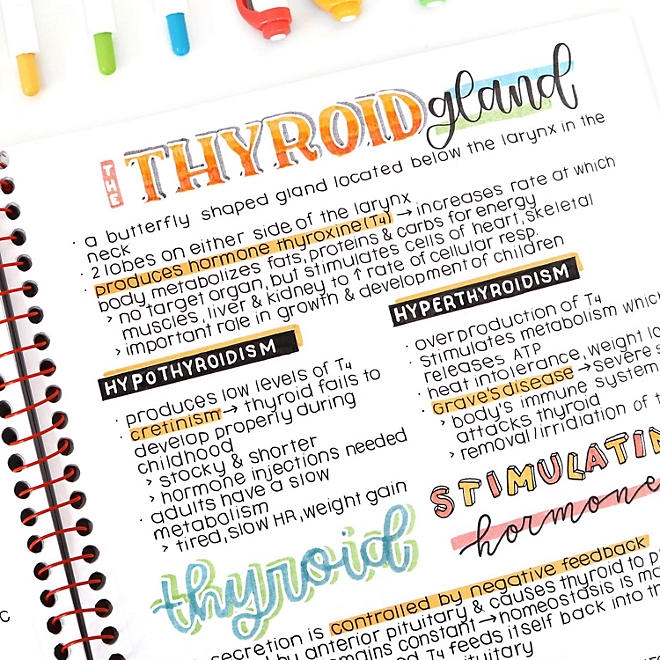 THE THYROID gland
· a butterfly shaped gland located below the larynx in the
neck
· 2 lobes on either side of the larynx
· produces hormone thyroxine (T₄) → increases rate at which
body metabolizes fats, proteins & carbs for energy
> no target organ, but stimulates cells of heart, skeletal
muscles, liver & kidney to ↑ rate of cellular resp.
> important role in growth & development of children
HYPOTHYROIDISM
· produces low levels of T₄
· cretinism → thyroid fails to
develop properly during
childhood
> stocky & shorter
> hormone injections needed
· adults have a slow
metabolism
> tired, slow HR, weight gain
HYPERTHYROIDISM
· overproduction of T₄
· stimulates metabolism which
releases ATP
· heat intolerance, weight lo
· Grave's disease → severe s
> body's immune system
attacks thyroid
> removal/irridiation of t
thyroid
STIMULATIN
hormone
secretion is controlled by negative feedback
by anterior pituitary & causes thyroid to p
remains constant → homeostasis is ma
T₄ feeds itself back into th
pituitary